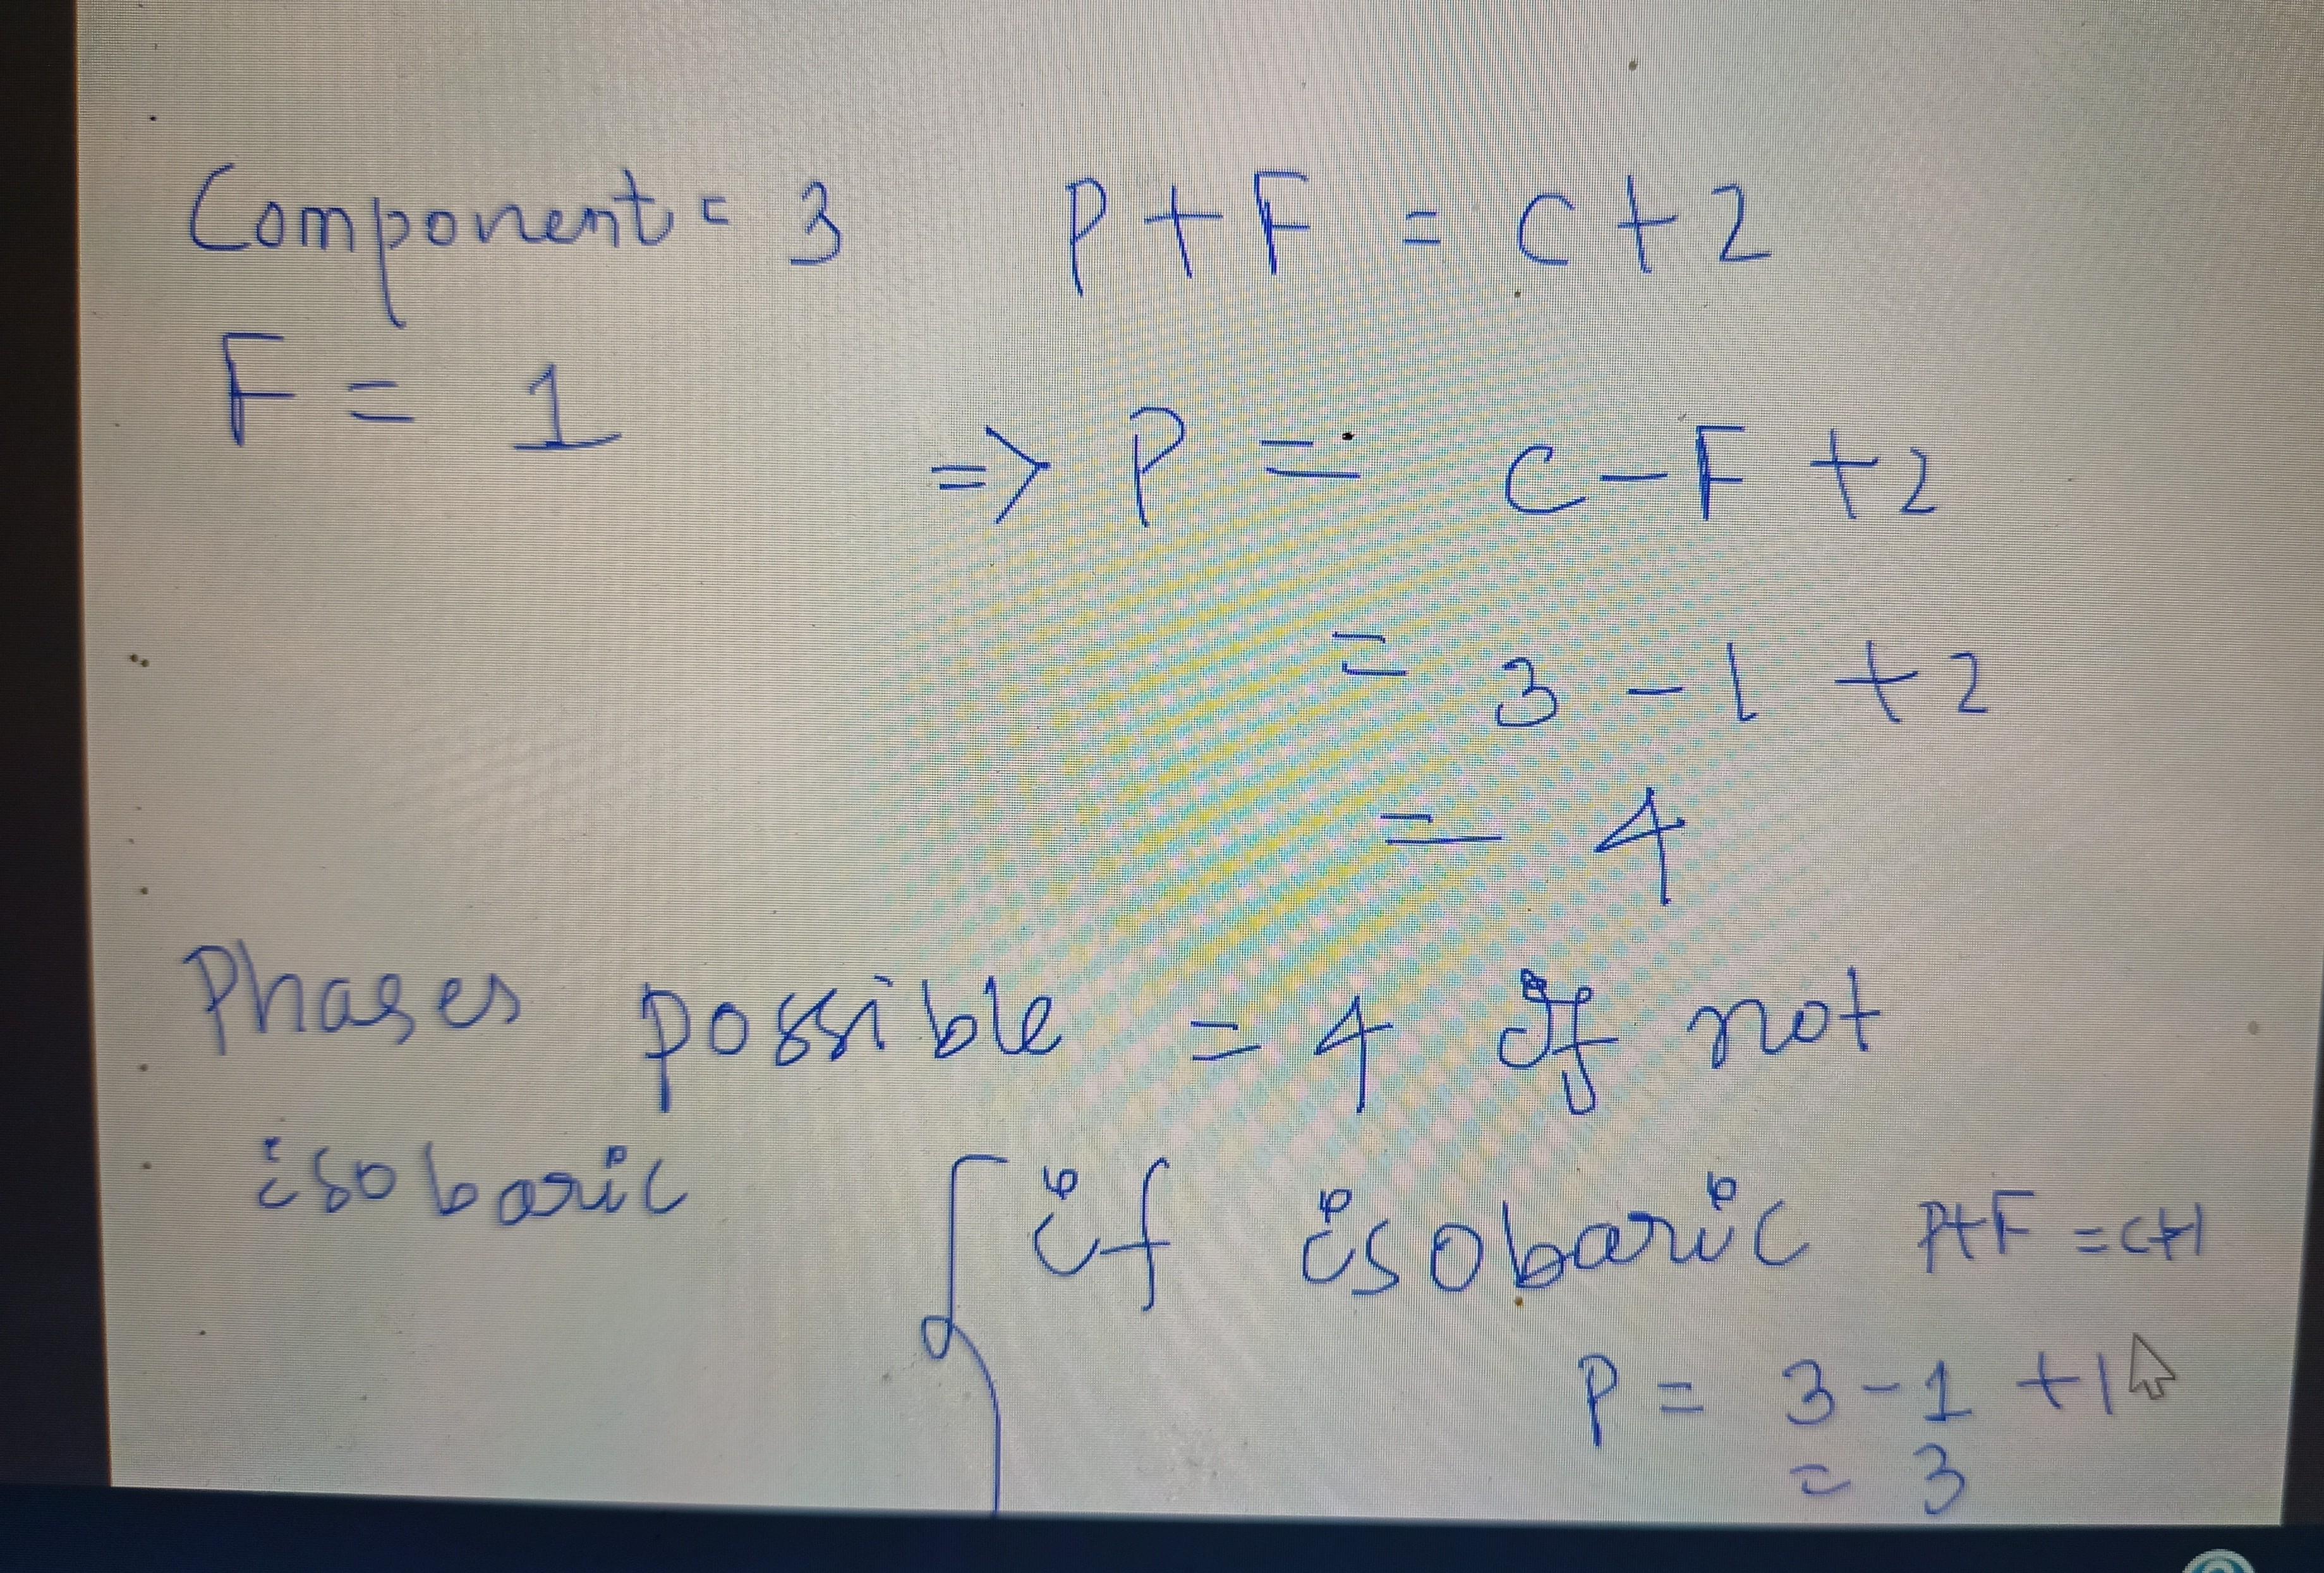 Component = 3 P + F = C + 2
F = 1
=> P = C - F + 2
= 3 - 1 + 2
= 4
Phases possible = 4 If not
isobaric if isobaric P+F = C+1
P = 3 - 1 + 1
= 3